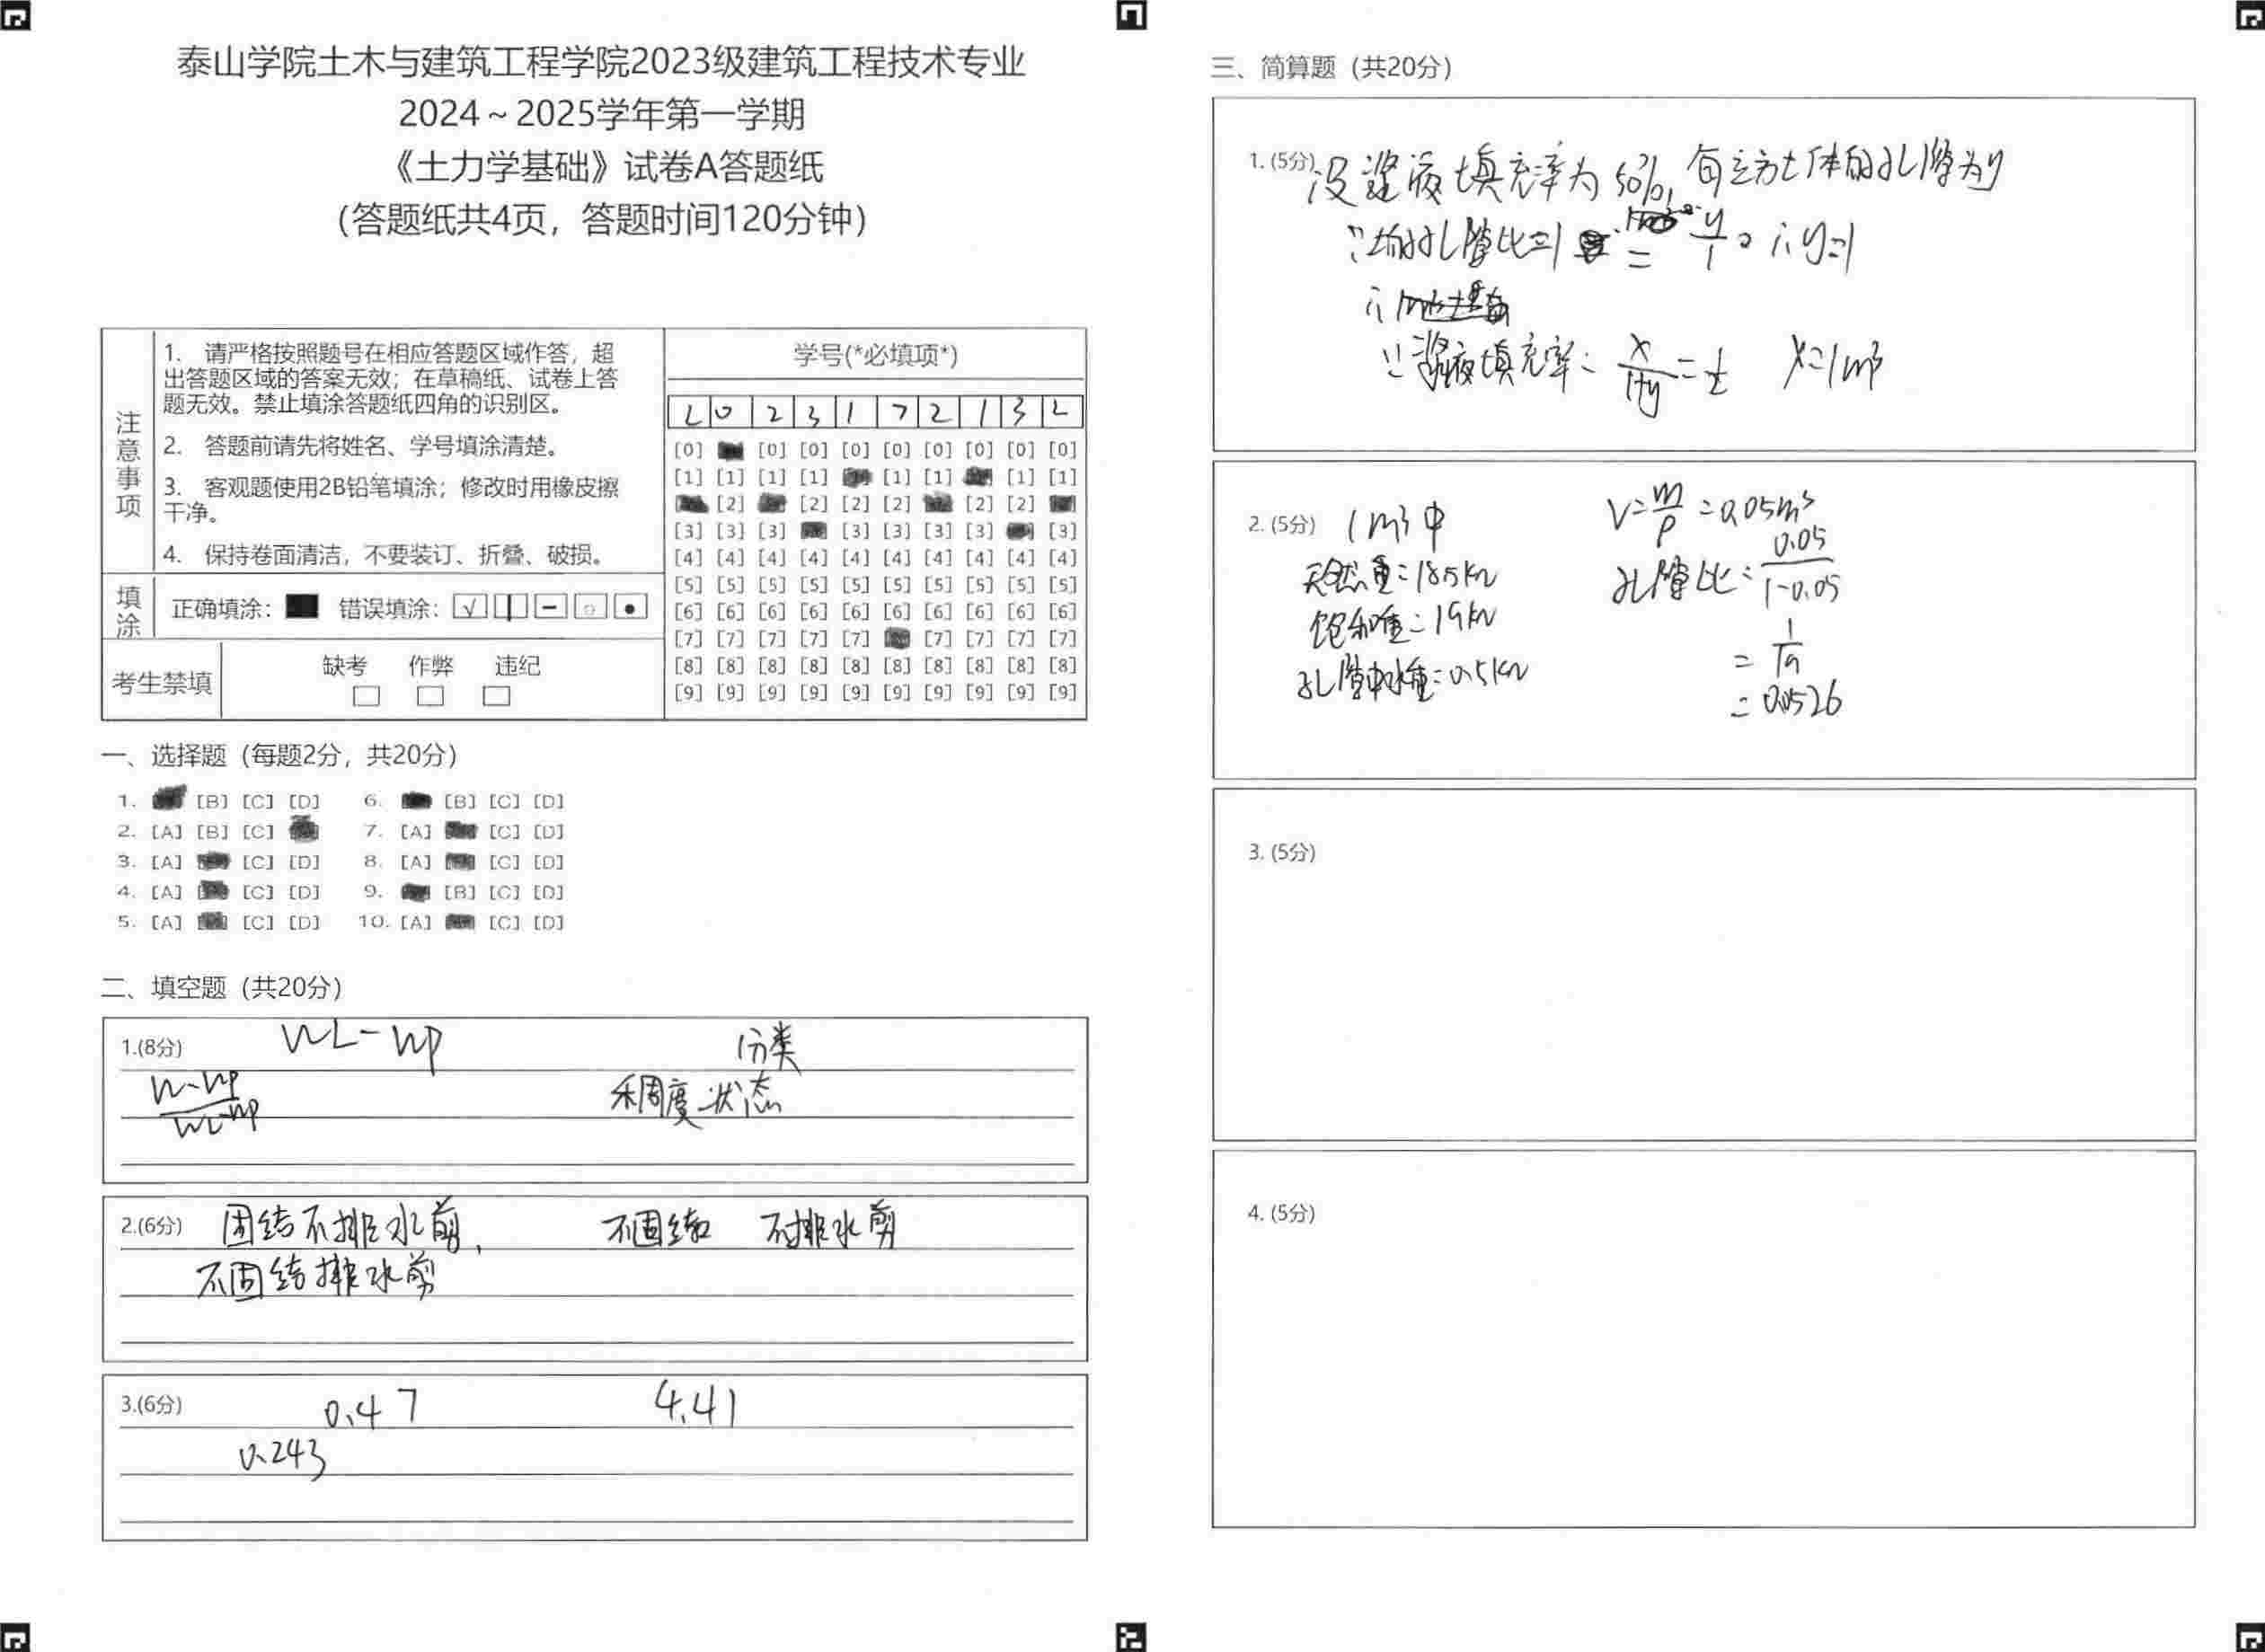 泰山学院土木与建筑工程学院2023级建筑工程技术专业
2024～2025学年第一学期
《土力学基础》试卷A答题纸
（答题纸共4页，答题时间120分钟）
注意事项
1. 请严格按照题号在相应答题区域作答，超
出答题区域的答案无效；在草稿纸、试卷上答
题无效。禁止填涂答题纸四角的识别区。
2. 答题前请先将姓名、学号填涂清楚。
3. 客观题使用2B铅笔填涂；修改时用橡皮擦
干净。
4. 保持卷面清洁，不要装订、折叠、破损。
填涂
正确填涂： 错误填涂：
考生禁填
缺考 作弊 违纪
学号(*必填项*)
2 0 2 3 1 7 2 1 3 2
[0] [0] [0] [0] [0] [0] [0] [0] [0]
[1] [1] [1] [1] [1] [1] [1] [1]
[2] [2] [2] [2] [2] [2]
[3] [3] [3] [3] [3] [3] [3] [3]
[4] [4] [4] [4] [4] [4] [4] [4] [4] [4]
[5] [5] [5] [5] [5] [5] [5] [5] [5] [5]
[6] [6] [6] [6] [6] [6] [6] [6] [6] [6]
[7] [7] [7] [7] [7] [7] [7] [7] [7]
[8] [8] [8] [8] [8] [8] [8] [8] [8] [8]
[9] [9] [9] [9] [9] [9] [9] [9] [9] [9]
一、选择题（每题2分，共20分）
1. [B] [C] [D] 6. [B] [C] [D]
2. [A] [B] [C] 7. [A] [C] [D]
3. [A] [C] [D] 8. [A] [C] [D]
4. [A] [C] [D] 9. [B] [C] [D]
5. [A] [C] [D] 10. [A] [C] [D]
二、填空题（共20分）
1.(8分) WL-Wp 分类
W-Wp/WL-Wp 稠度状态
2.(6分) 固结不排水剪， 不固结 不排水剪
不固结排水剪
3.(6分) 0.47 4.41
0.243
三、简算题（共20分）
1. (5分) 设浆液填充率为50%，每立方土体的孔隙为y
∵土的孔隙比=1 = y/1。∴y=1
∵浆液填充率= x/1+y = 1/2 x=1m³
2. (5分) 1m³中
天然重=18.5kN
饱和重=19kN
孔隙中水重=0.5kN
V=m/ρ=0.05m³
孔隙比=0.05/1-0.05
=1/19
=0.0526
3. (5分)
4. (5分)